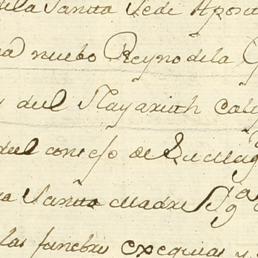 dela Santa Sede Apost
nuebo Reyno dela G
del Nayarith Cali
del consejo de Su Mag
Santa Madre Yg
las funebre exequias y